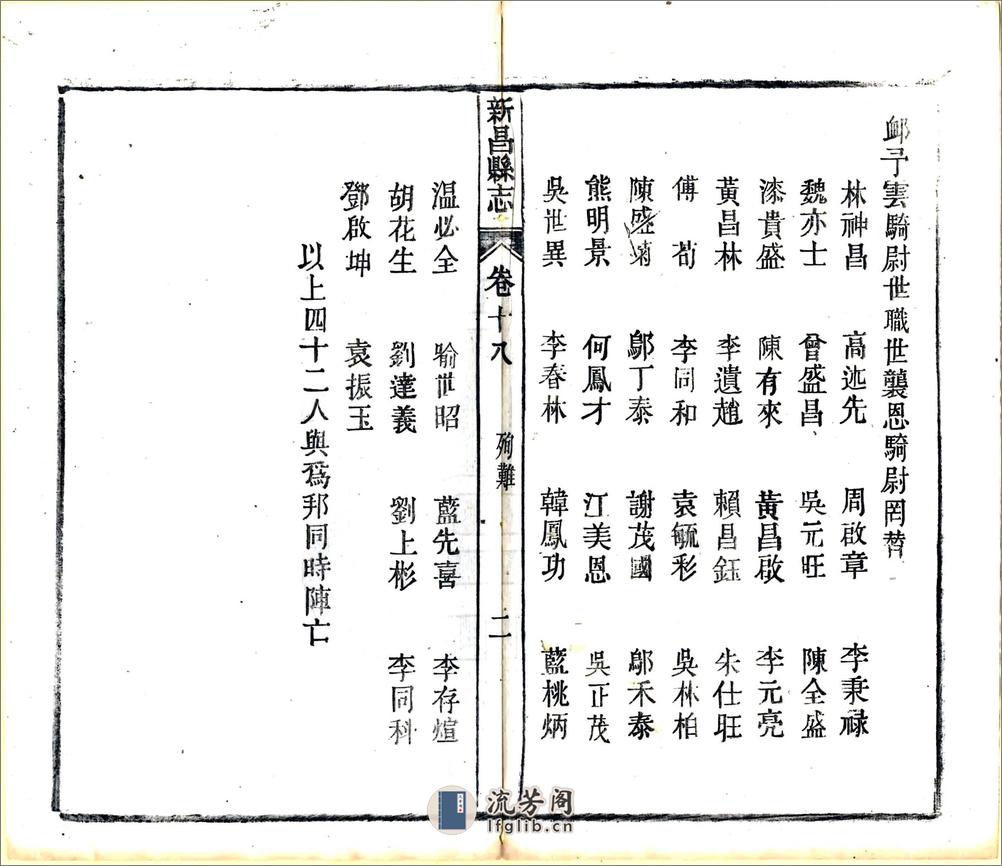 䘏予雲騎尉世職世襲恩騎尉罔替
林神昌 高迯先 周啟章 李秉禄
魏亦士 曾盛昌 吳元旺 陳全盛
漆貴盛 陳有來 黃昌啟 李元亮
黃昌林 李遺趙 賴昌鈺 朱仕旺
傅荀 李同和 袁毓彩 吳林柏
陳盛 鄔丁泰 謝茂國 鄔禾泰
熊明景 何鳳才 江美恩 吳正茂
吳世異 李春林 韓鳳功 藍桃炳
新昌縣志 卷十八 殉難 二
温必全 喻世昭 藍先喜 李存煊
胡花生 劉達義 劉上彬 李同科
鄧啟坤 袁振玉
以上四十二人與爲邦同時陣亡
流芳阁
lfglib.cn